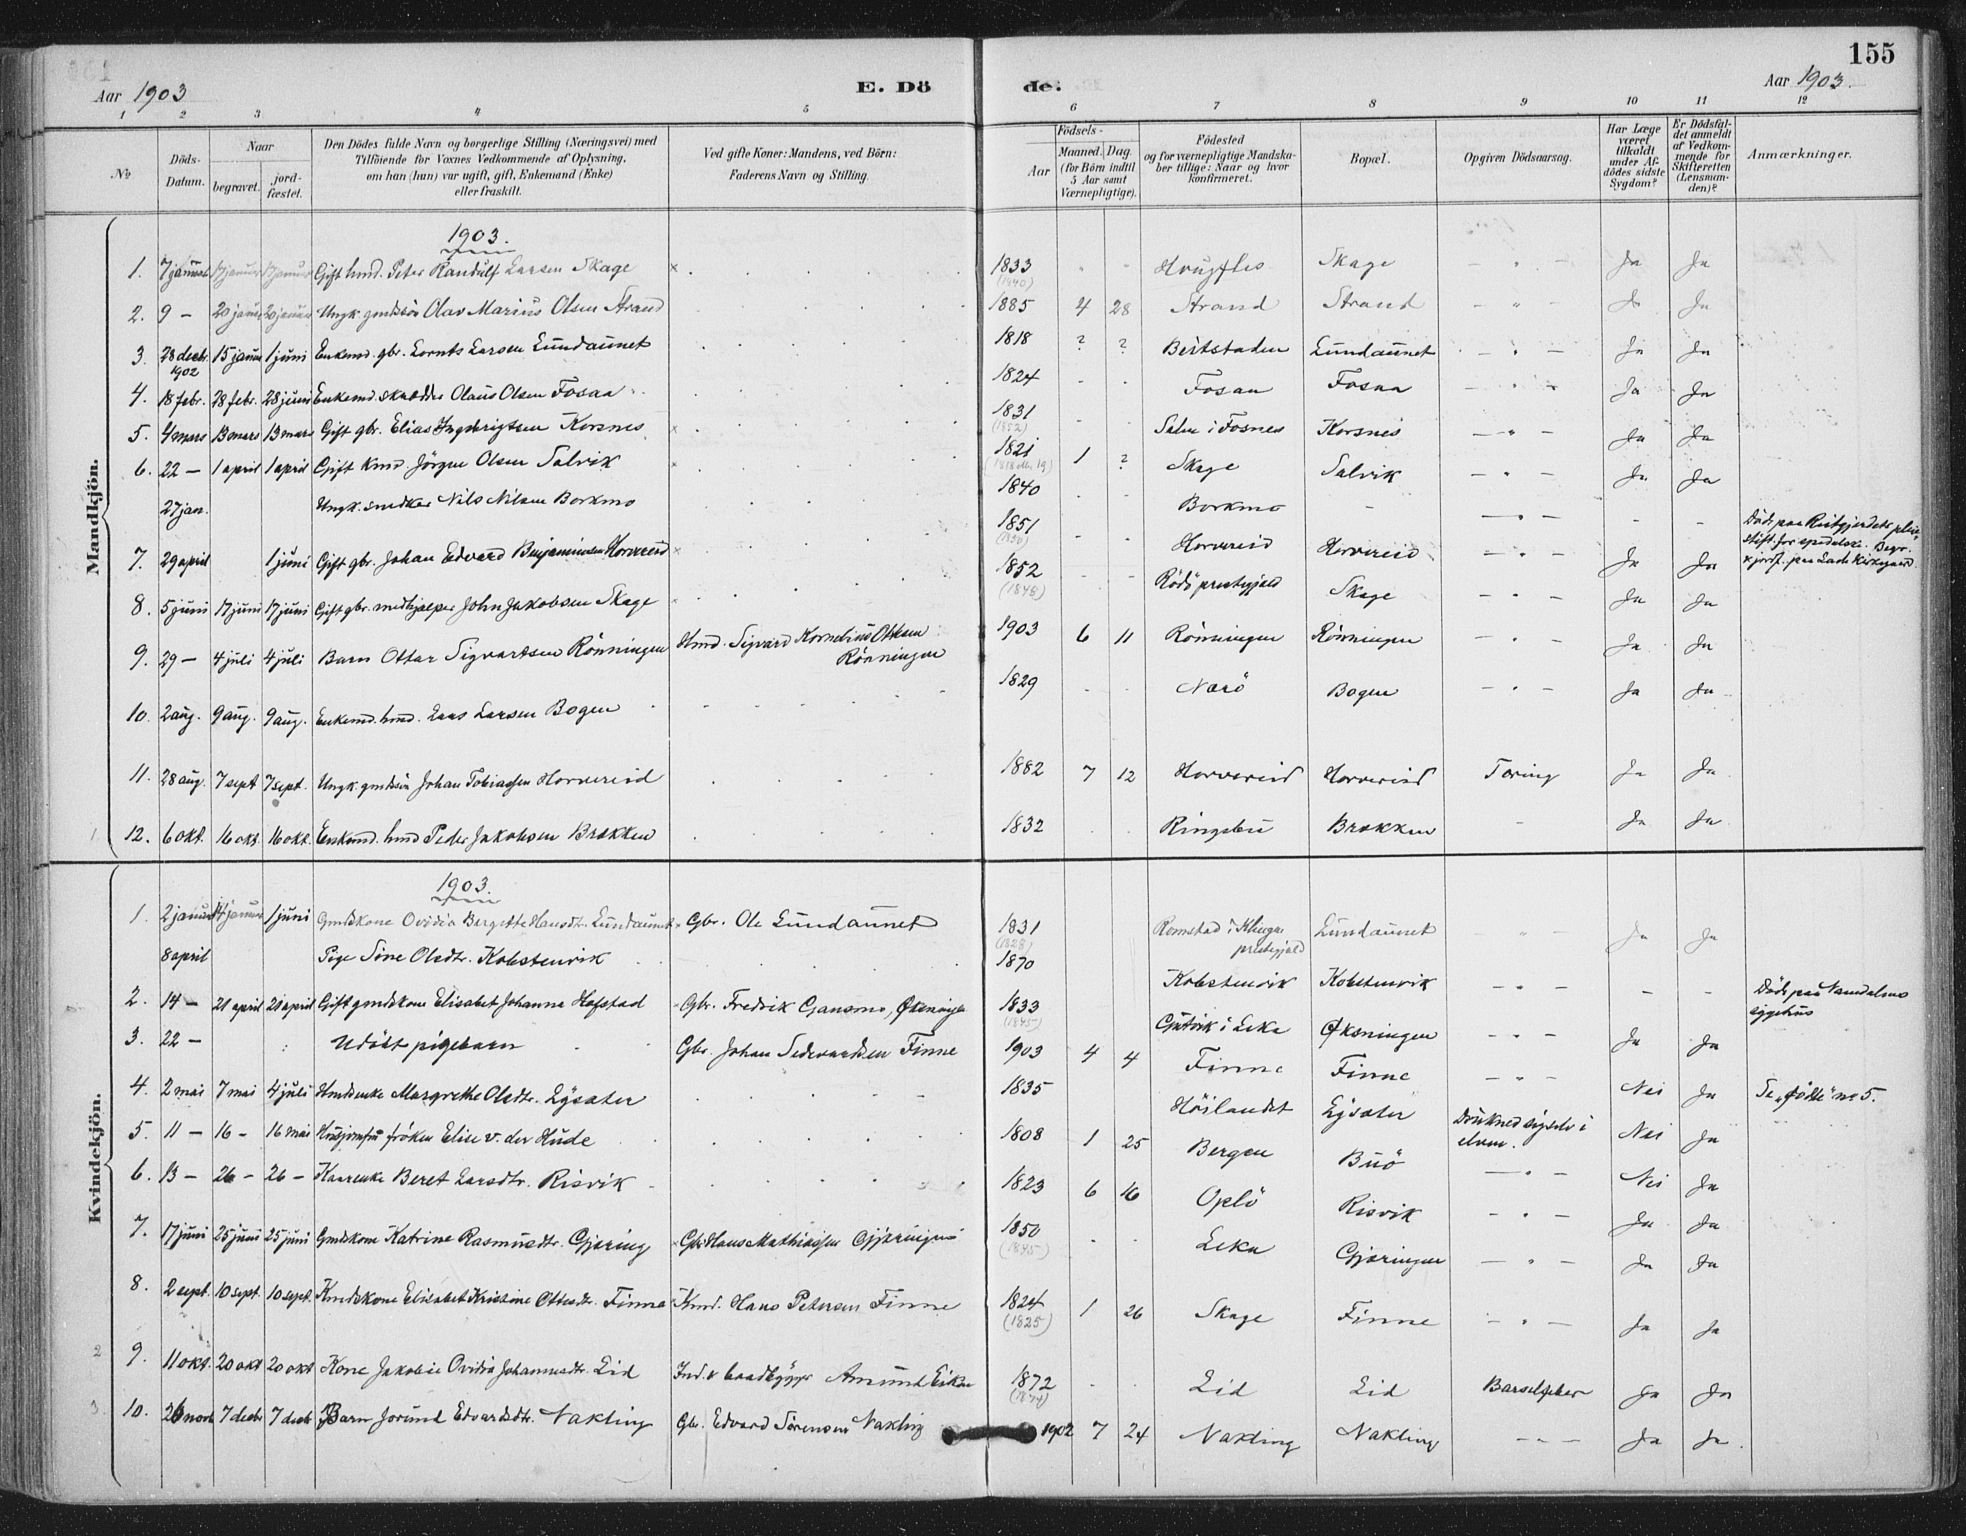 155
Aar 1903 E. Dö de. Aar 1903.
1 2 3 4 5 6 7 8 9 10 11 12
No
Döds-Datum.
Naar
begravet. jordfæstet.
Den Dödes fulde Navn og borgerlige Stilling (Næringsvei) med
Tilföiende for Voxnes Vedkommende af Oplysning,
om han (hun) var ugift, gift, Enkemand (Enke)
eller fraskilt.
Ved gifte Koner: Mandens, ved Börn:
Faderens Navn og Stilling.
Födsels-
Aar Maaned. Dag.
(for Börn indtil
5 Aar samt
Værnepligtige).
Födested
og for værnepligtige Mandskaber tillige: Naar og hvor
konfirmeret.
Bopæl.
Opgiven Dödsaarsag.
Har Læge
været
tilkaldt
under Afdödes sidste
Sygdom?
Er Dödsfaldet anmeldt
af Vedkommende for
Skifteretten
(Lensmanden)?
Anmærkninger.
Mandkjön.
1903.
1. 7 januar 17 januar 17 januar Gift hmd. Peter Randulf Larsen Skage × 1833 (1840) Skage Ja Ja
2. 9 – 20 januar 20 januar Ungk. gmdssön Olav Marius Olsen Strand 1885 4 28 Strand Strand Ja Ja
3. 28 decbr. 1902 15 januar 1 juni Enkemd. gbr. Lornts Larsen Lundaunet 1818 ? ? Beitstaden Lundaunet Ja Ja
4. 18 febr. 28 febr. 28 juni Enkemd. skrædder Olaus Olsen Fosaa 1824 Fosaa Fosaa Ja Ja
5. 4 mars 13 mars 13 mars Gift gbr. Elias Ingebrigtsen Korsnes × 1831 (1852) Salen i Fosnes Korsnes Ja Ja
6. 22 – 1 april 1 april Gift kmd. Jörgen Olsen Salvik × 1821 1 ? Skage Salvik Ja Ja
27 jan. Ungk. snedker Nils Nilsen Borkmo 1840 Borkmo – – –
Död paa Reitgjerdets pleiestift. for spedalske. Begr.
& jordf. paa Lade Kirkegaard.
7. 29 april 1 juni Gift gbr. Johan Edvard Benjaminsen Horvereid × 1851 (1850) Horvereid Horvereid Ja Ja
8. 5 juni 17 juni 17 juni Gift gbr. medhjælper John Jakobsen Skage × 1852 (1848) Rödö prestegjæld Skage Ja Ja
9. 29 – 4 juli 4 juli Barn Ottar Sigvartsen Rönningen Hmd. Sigvard Kornelius Ottesen
Rönningen 1903 6 11 Rönningen Rönningen Ja Ja
10. 2 aug. 9 aug. 9 aug. Enkemd. hmd. Lars Larsen Bogen 1829 Nærö Bogen Ja Ja
11. 28 aug. 7 sept 7 sept. Ungk. gmdssön Johan Tobiassen Horvereid 1882 7 12 Horvereid Horvereid Tæring Ja Ja
12. 6 okt. 16 okt. 16 okt. Enkemd. hmd Peder Jakobsen Brækken 1832 Ringebu Brækken – Ja Ja
Kvindekjön.
1903.
1. 2 januar 14 januar 1 juni Gmdskone Ovidia Bergitte Hansdtr. Lundaunet × Gbr. Ole Lundaunet 1831 (1828) Romstad i Klinga
prestegjæld Lundaunet Ja Ja
8 april Pige Sine Olsdtr. Kolstenvik 1870 Kolstenvik Kolstenvik – –
Död paa Namdalens
sygehus
2. 14 – 21 april 21 april Gift gmdskone Elisabet Johanna Hofstad × Gbr. Fredrik Gansmo, Øksningen 1833 (1845) Gutvik i Leka Øksningen Ja Ja
3. 22 – Udöbt pigebarn Gbr. Johan Sedevardsen Finne 1903 4 4 Finne Finne Nei Ja Se „födte" no 5.
4. 2 mai 7 mai 4 juli Hmdsenke Margrethe Olsdtr. Lysæter 1835 Höilandet Lysæter Drukned sigselv i
elven. Nei Ja
5. 11 – 16 – 16 mai Husjomfru fröken Elise v. der Hude 1808 1 25 Bergen Buö Nei Ja
6. 13 – 26 – 26 – Kaarenke Beret Larsdtr. Risvik 1823 6 16 Oplö Risvik Ja Ja
7. 17 juni 25 juni 25 juni Gmdskone Katrine Rasmusdtr. Gjæring × Gbr. Hans Mathiassen Gjæringen 1850 (1845) Leka Gjæringen Ja Ja
8. 2 sept. 10 sept. 10 sept. Kmdskone Elisabet Kristine Ottesdtr. Finne × Kmd. Hans Petersen Finne 1824 (1825) 1 26 Skage Finne Ja Ja
9. 11 okt. 20 okt 20 okt Kone Jakobie Ovidia Johannesdtr. Eid Ind. & baadbygger Amund Eidsen 1872 (1874) Eid Eid Barselfeber Ja Ja
10. 26 novb 7 decbr 7 decbr Barn Jorund Edvardsdtr. Nakling Gbr. Edvard Sörensen Nakling 1902 7 24 Nakling Nakling Ja Ja